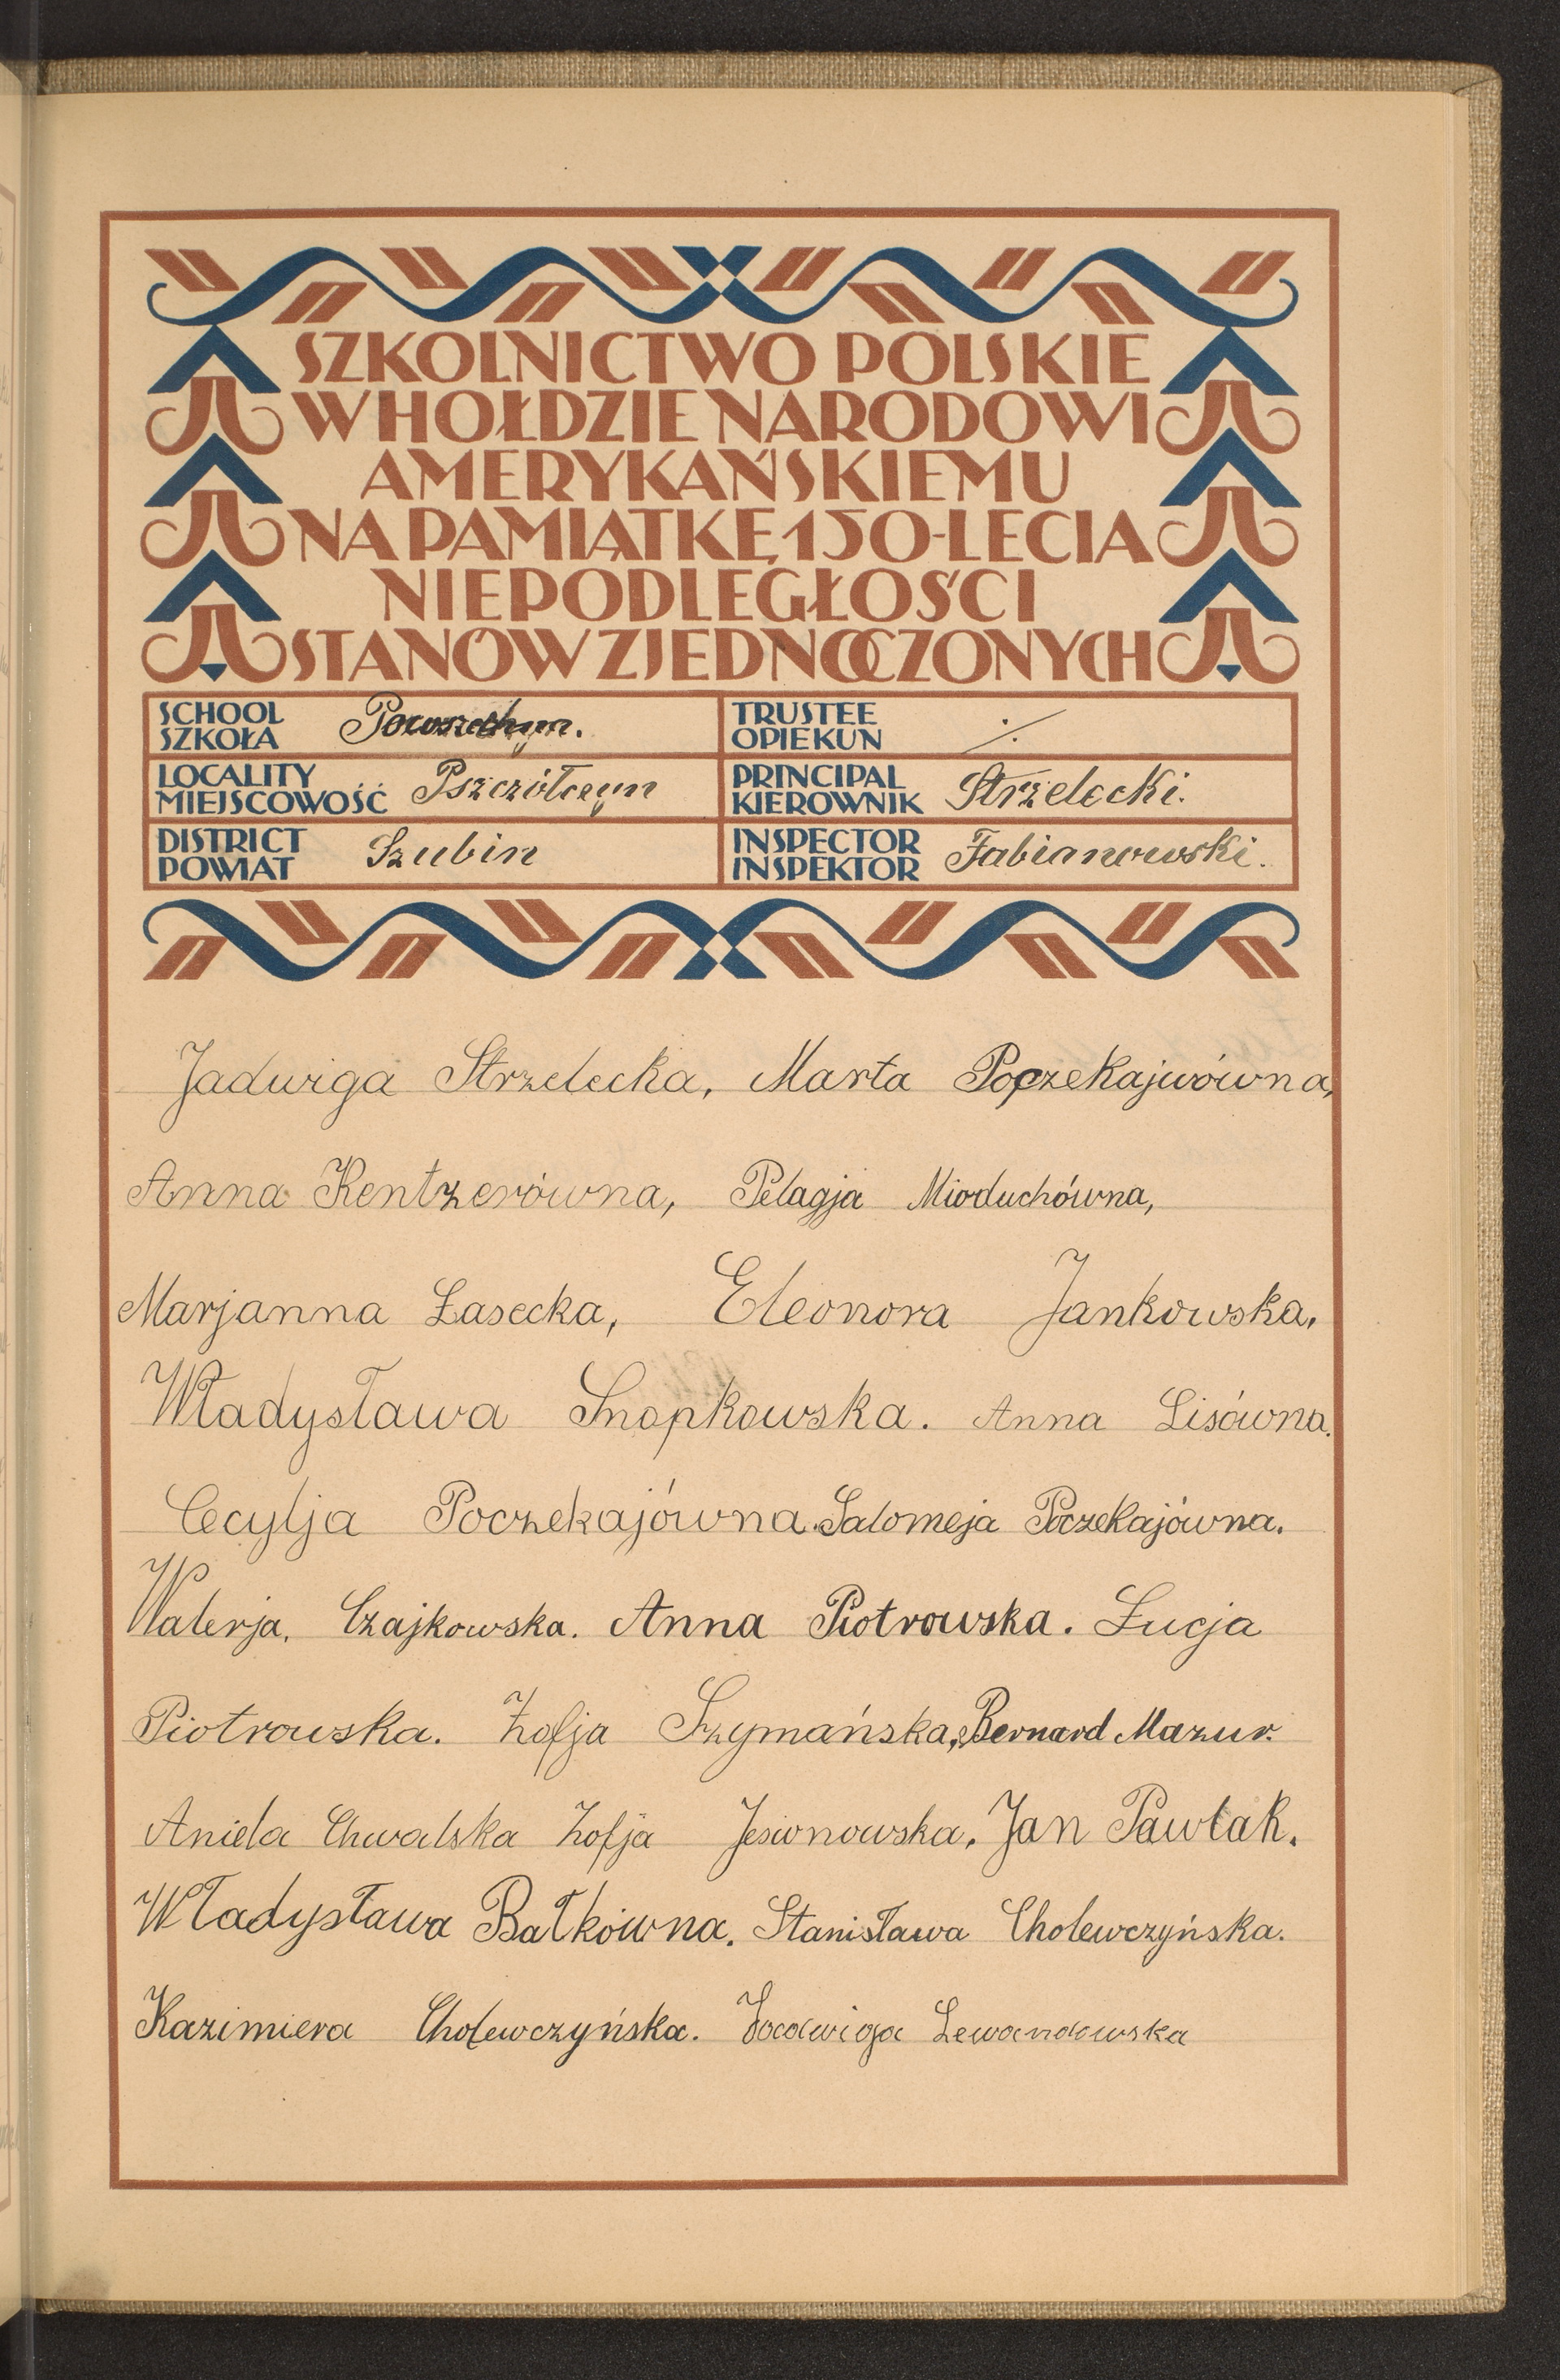 SZKOLNICTWO POLSKIE
W HOŁDZIE NARODOWI
AMERYKAŃSKIEMU
NA PAMIĄTKĘ 150-LECIA
NIEPODLEGŁOŚCI
STANÓW ZJEDNOCZONYCH
SCHOOL
SZKOŁA
TRUSTEE
OPIEKUN ./.
LOCALITY
MIEJSCOWOŚĆ Pszczółczyn
PRINCIPAL
KIEROWNIK Strzelecki.
DISTRICT
POWIAT Szubin
INSPECTOR
INSPEKTOR Fabianowski.
Jadwiga Strzelecka, Marta Poczekajwówna,
Anna Kentzerówna, Pelagja Mioduchówna,
Marjanna Łasecka, Eleonora Jankowska.
Władysława Snopkowska. Anna Lisówna.
Cecylja Poczekajówna. Salomeja Poczekajówna.
Walerja. Czajkowska. Anna Piotrowska. Łucja
Piotrowska. Zofja Szymańska, Bernard Mazur.
Aniela Chwalska Zofja Jesionowska. Jan Pawlak.
Władysława Bałkówna. Stanisława Cholewczyńska.
Kazimiera Cholewczyńska. Jadwiga Lewandowska